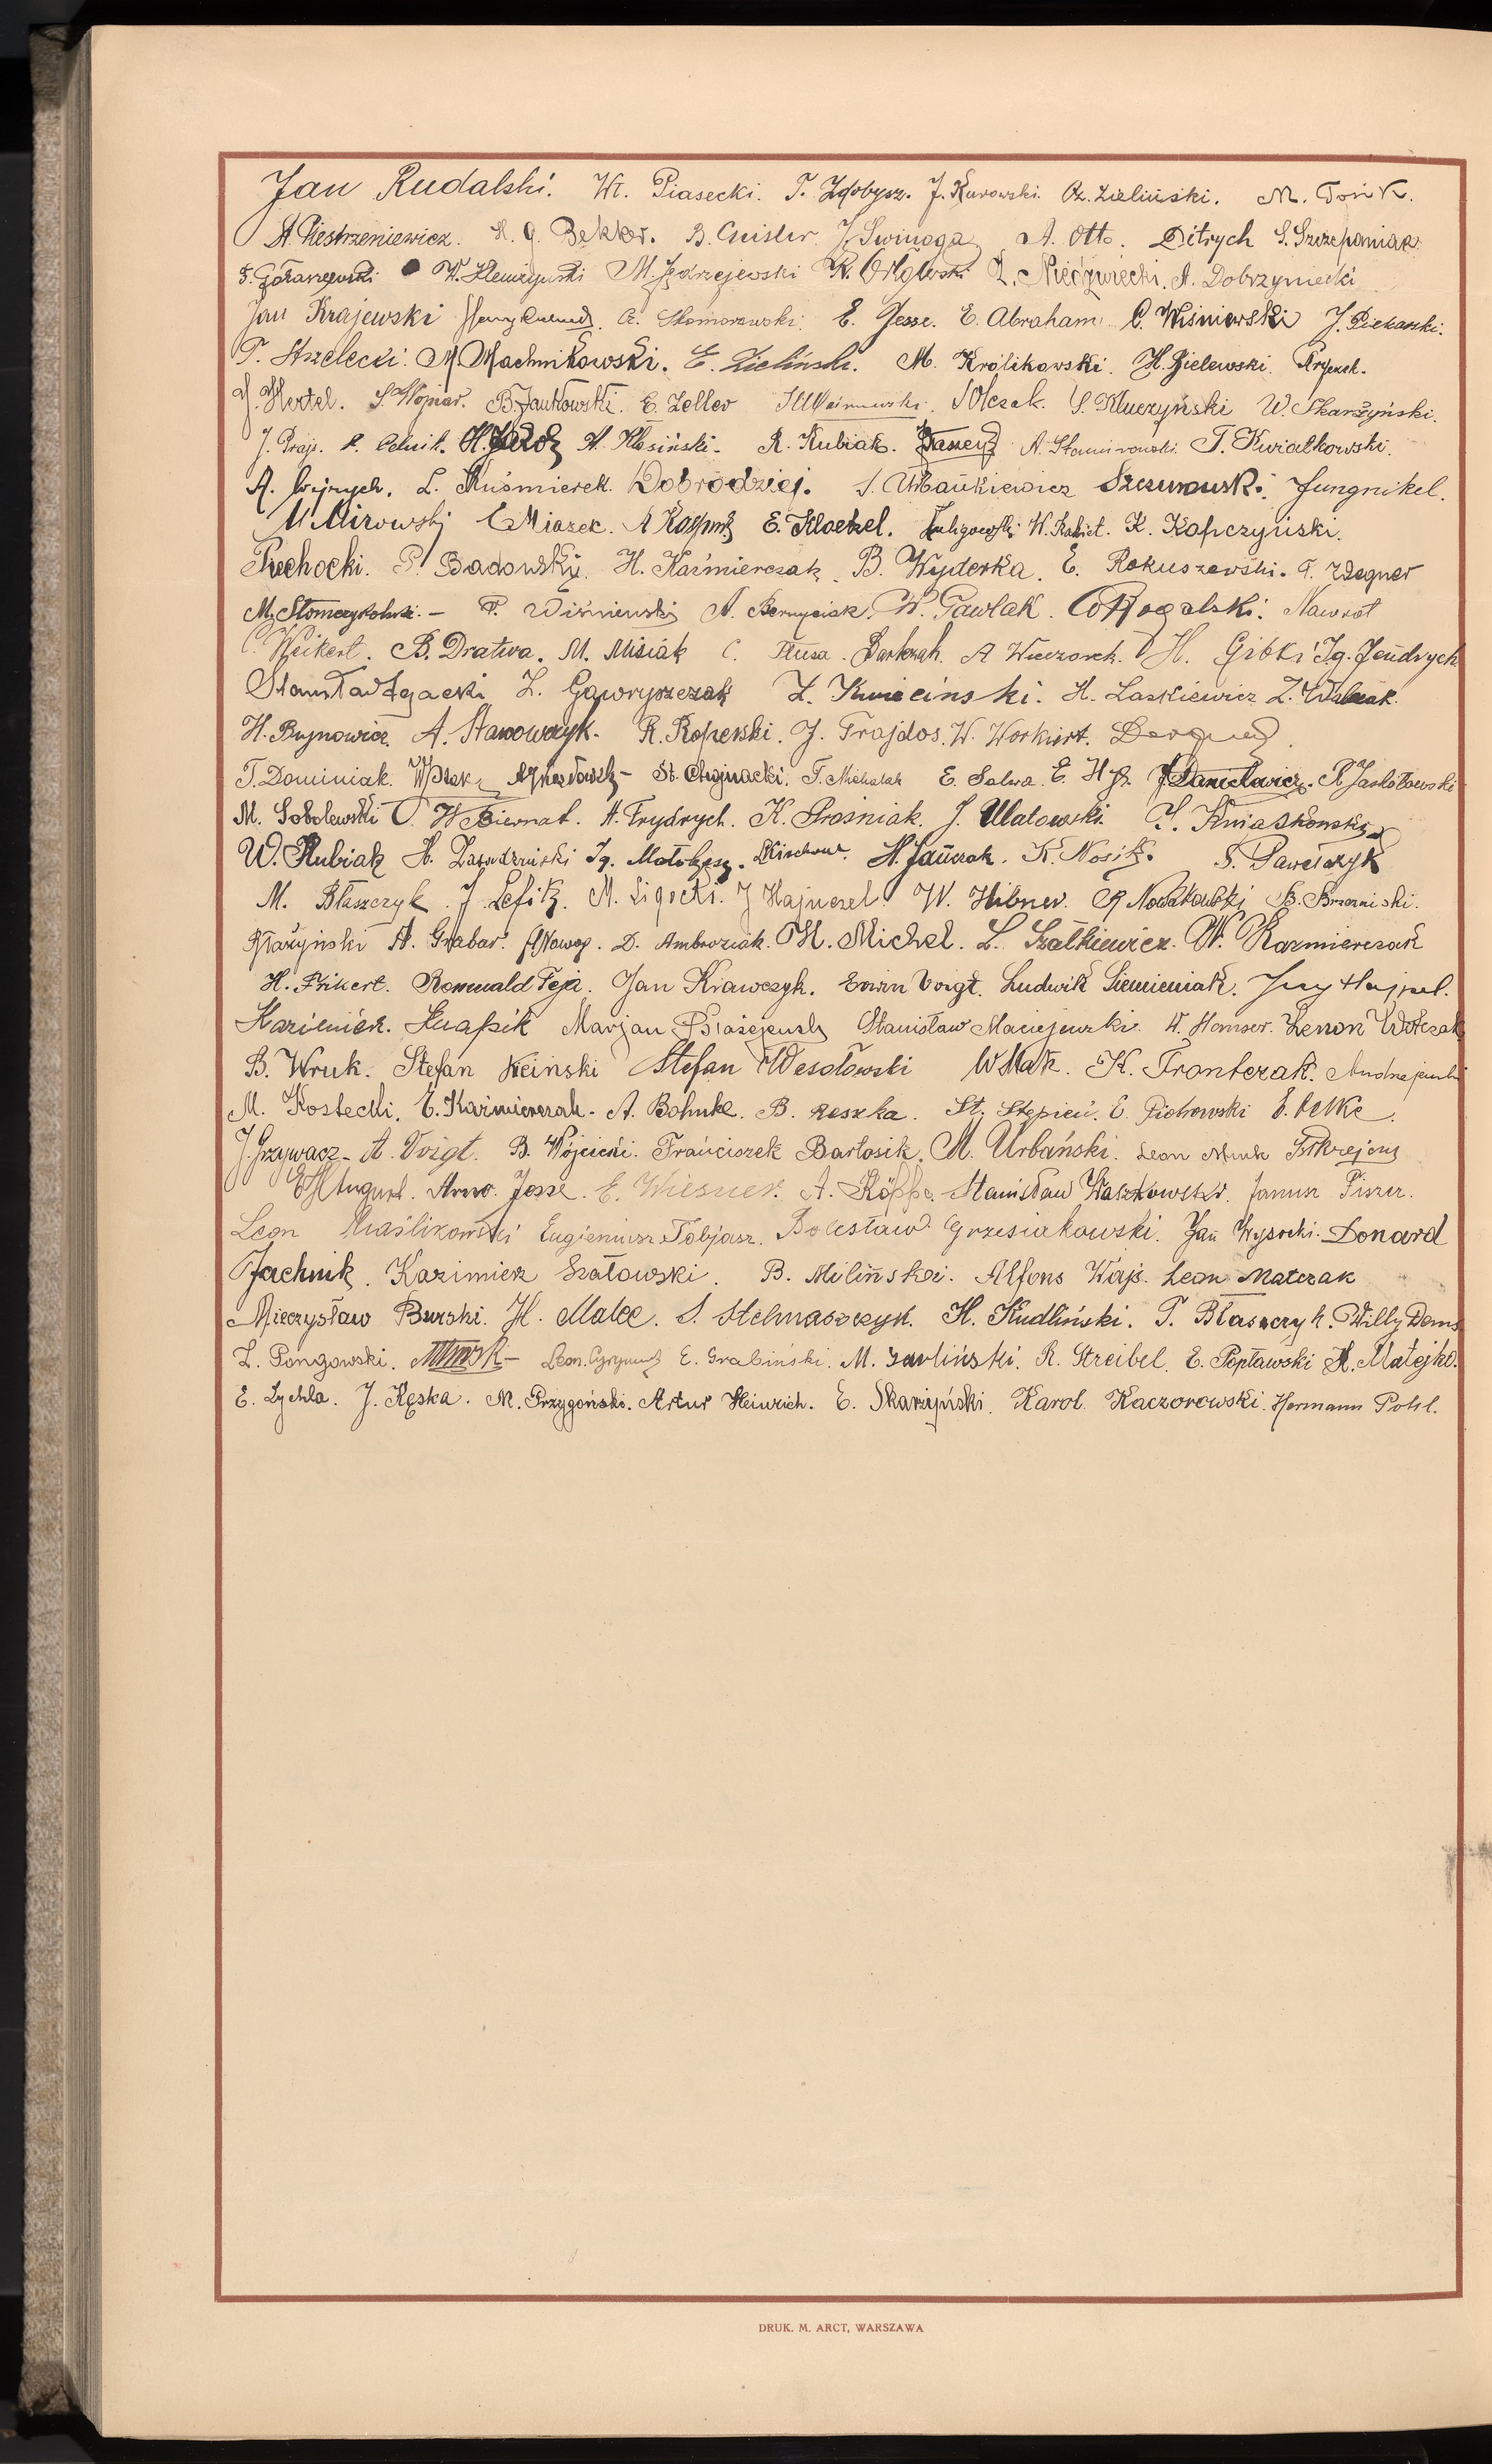 Jan Rudalski. Wł. Piasecki. T. Zdobysz. J. Kurowski. Cz. Zieliński. M. Tośik.
A. Piestrzeniewicz. H. G. Bekker. B. Geisler J. Swinoga A. Otto. Ditrych S. Szczepaniak
F. Gołaszewski W. M. Jędrzejewski K. Orłowski Niedźwiecki. A. Dobrzyniecki
Jan Krajewski A. Skomorowski. E. Jesse. E. Abraham C. Wiśniewski J. Piekarski.
T. Strzelecki. M. Machnikowski. E. Zieliński. M. Królikowski. H. Gielewski.
H. Hertel. S. Wojnar. B. Jankowski. E. Zeller Olczak. S. Kluczyński W. Skarżyński.
J. Praji. H. A. Kłosiński. R. Kubiak. A. T. Kwiatkowski.
A. Wojrych. L. Kuśmierek. Dobrodziej. S. Urbańkiewicz Szczurowski. Jungnikel.
M Mirowski C Miazek. A E. Kloetzel. W. K. Kopczyński.
Piechocki. P. Sadowski. H. Kaźmierczak B. Wyderka. E. Rokuszewski. T. Wegner
M. P. Wiśniewski A. W. Pawlak. Rogalski. Nawrot
C. Weikert. B. Dratwa. M. Misiak C. Flusa. Bartczak. A Wieczorek. H. Gibki Ig. Jendrych
Stanisław Zgacki L. Gawryszczak Z. Kwieciński. H. Laskiewicz Z. Walczak.
H. Bujnowicz. A. Stanowczyk. R. Koperski. J. Trajdos. W. Workiert.
T. Dominiak. W Ptak St. Chojnacki. T. Michalak E. Salwa. E. J. Danielewicz. R. Jaskółowski
M. Sobolewski W Biernat. A. Frydrych. K. Prośniak. J. Ulatowski. S. Kwiatkowski
W. Kubiak H. Zawadziński Ig. Małolepszy. Kirchow. H. Jańczak. K. Nosik. S. Pawelczyk
M. Błaszczyk. J. Lefik. M. Ligocki. J Hajnczel. W. Hibner. R Nowakowski B. Brzeziński.
Karzyński A. Grabar. D. Ambroziak. H. Michel. L. Szałkiewicz. W. Kazmierczak
H. Pikert. Romuald Feja. Jan Krawczyk. Erwin Voigt. Ludwik Siemieniak. Jerzy Hajpel.
Kazimierz. Knapik Marjan Błażejewski Stanisław Maciejewski. W. Hamser. Zenon Wołczak
B. Wruk. Stefan Kciński Stefan Wesołowski W Mak. K. Frontczak. Andrzejewski
M. Kostecki. E. Kaźmierczak. A. Bohnke. B. Reszka. St. Stępień. E. Piotrowski E. Petke.
J. Grzywacz. A. Voigt. B. Wójcicki. Franciszek Bartosik. M. Urbański. Leon Munk
August. Arno. Jesse. E. Wiesner. A. Köppe. Stanisław Waszkowski. Janusz Fiszer.
Leon Maślikowski Eugieniusz Tobjasz. Bolesław Grzesiakowski. Jan Wysocki. Donard
Jachnik. Kazimierz Szałowski. B. Miliński. Alfons Wajs. Leon Matczak
Mieczysław Burski. H. Malec. S. Stelmaszczyk. H. Kudliński. T. Błaszczyk. Willy Dems
L. Pongowski. Leon. E. Grabiński. M. Zawliński. R. Streibel. E. Popławski K. Matejko.
E. Zychla. J. Kęska. M. Przygoński. Artur Heinrich. E. Skarżyński. Karol. Kaczorowski. Hermann Pohl.
DRUK. M. ARCT, WARSZAWA